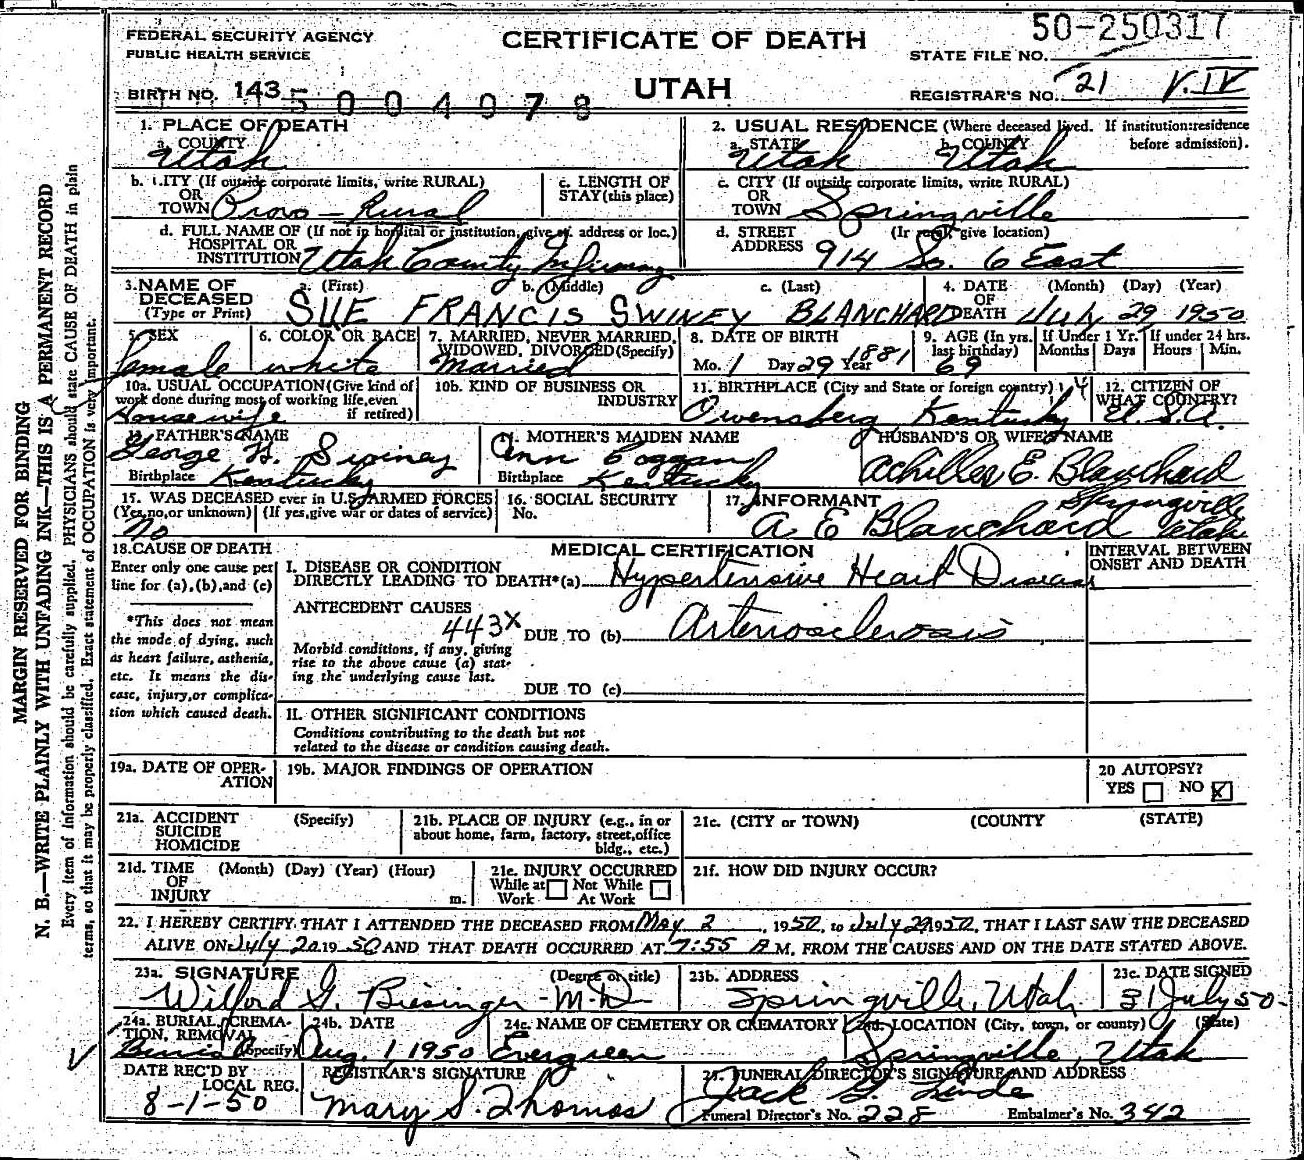 50-250317
FEDERAL SECURITY AGENCY
PUBLIC HEALTH SERVICE
CERTIFICATE OF DEATH
UTAH
STATE FILE NO.
BIRTH NO. 143 5004078
REGISTRAR'S NO. 21 V.IV
MARGIN RESERVED FOR BINDING
N. B.—WRITE PLAINLY WITH UNFADING INK—THIS IS A PERMANENT RECORD
Every item of information should be carefully supplied. PHYSICIANS should state CAUSE OF DEATH in plain
terms, so that it may be properly classified. Exact statement of OCCUPATION is very important.
1. PLACE OF DEATH
a. COUNTY
Utah
2. USUAL RESIDENCE (Where deceased lived. If institution:residence
before admission).
a. STATE b. COUNTY
Utah Utah
b. CITY (If outside corporate limits, write RURAL)
OR
TOWN Provo - Rural
c. LENGTH OF
STAY (this place)
c. CITY (If outside corporate limits, write RURAL)
OR
TOWN Springville
d. FULL NAME OF (If not in hospital or institution, give st. address or loc.)
HOSPITAL OR
INSTITUTION Utah County Infirmary
d. STREET (If rural, give location)
ADDRESS 914 So. 6 East
3. NAME OF
DECEASED
(Type or Print)
a. (First) b. (Middle) c. (Last)
SUE FRANCIS SWINEY BLANCHARD
4. DATE (Month) (Day) (Year)
OF
DEATH July 29 1950
5. SEX
female
6. COLOR OR RACE
white
7. MARRIED, NEVER MARRIED,
WIDOWED, DIVORCED (Specify)
Married
8. DATE OF BIRTH
Mo. 1 Day 29 Year 1881
9. AGE (In yrs.
last birthday)
69
If Under 1 Yr.
Months Days
If under 24 hrs.
Hours Min.
10a. USUAL OCCUPATION (Give kind of
work done during most of working life, even
if retired)
Housewife
10b. KIND OF BUSINESS OR
INDUSTRY
11. BIRTHPLACE (City and State or foreign country)
Owensberg, Kentucky
12. CITIZEN OF
WHAT COUNTRY?
U.S.A.
FATHER'S NAME
George H. Swiney
Birthplace Kentucky
MOTHER'S MAIDEN NAME
Ann Coggan
Birthplace Kentucky
HUSBAND'S OR WIFE'S NAME
Achilles E. Blanchard
15. WAS DECEASED ever in U.S. ARMED FORCES
(Yes, no, or unknown) (If yes, give war or dates of service)
No
16. SOCIAL SECURITY
No.
17. INFORMANT
A E Blanchard Springville Utah
18. CAUSE OF DEATH
Enter only one cause per
line for (a), (b), and (c)
*This does not mean
the mode of dying, such
as heart failure, asthenia,
etc. It means the dis-
ease, injury, or complica-
tion which caused death.
MEDICAL CERTIFICATION
INTERVAL BETWEEN
ONSET AND DEATH
I. DISEASE OR CONDITION
DIRECTLY LEADING TO DEATH*(a) Hypertensive Heart Disease
ANTECEDENT CAUSES
443X
DUE TO (b) Arteriosclerosis
Morbid conditions, if any, giving
rise to the above cause (a) stat-
ing the underlying cause last.
DUE TO (c)
II. OTHER SIGNIFICANT CONDITIONS
Conditions contributing to the death but not
related to the disease or condition causing death.
19a. DATE OF OPER-
ATION
19b. MAJOR FINDINGS OF OPERATION
20 AUTOPSY?
YES NO X
21a. ACCIDENT
SUICIDE
HOMICIDE
(Specify)
21b. PLACE OF INJURY (e.g., in or
about home, farm, factory, street, office
bldg., etc.)
21c. (CITY or TOWN) (COUNTY (STATE)
21d. TIME (Month) (Day) (Year) (Hour)
OF
INJURY m.
21e. INJURY OCCURRED
While at Not While
Work At Work
21f. HOW DID INJURY OCCUR?
22. I HEREBY CERTIFY THAT I ATTENDED THE DECEASED FROM May 2, 1950, to July 29 1950, THAT I LAST SAW THE DECEASED
ALIVE ON July 20 1950 AND THAT DEATH OCCURRED AT 7:55 A M. FROM THE CAUSES AND ON THE DATE STATED ABOVE.
23a. SIGNATURE (Degree or title)
Wilford G. Biesinger - M.D.
23b. ADDRESS
Springville, Utah
23c. DATE SIGNED
31 July 50
24a. BURIAL, CREMA-
TION, REMOVAL
Burial (Specify)
24b. DATE
Aug. 1, 1950
24c. NAME OF CEMETERY OR CREMATORY
Evergreen
24d. LOCATION (City, town, or county) (State)
Springville, Utah
DATE REC'D BY
LOCAL REG.
8-1-50
REGISTRAR'S SIGNATURE
Mary S. Thomas
25. FUNERAL DIRECTOR'S SIGNATURE AND ADDRESS
Jack G. Linde
Funeral Director's No. 228 Embalmer's No. 342